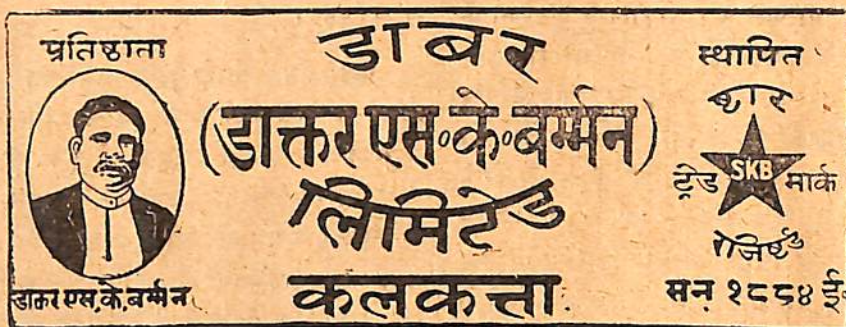 प्रतिष्ठाता
डाक्तर एस.के.बर्म्मन
डाबर
(डाक्तर एस॰के॰बर्म्मन)
लिमिटेड
कलकत्ता
स्थापित
ष्टार
ट्रेड SKB मार्क
रजिष्टर्ड
सन् १८८४ ई॰